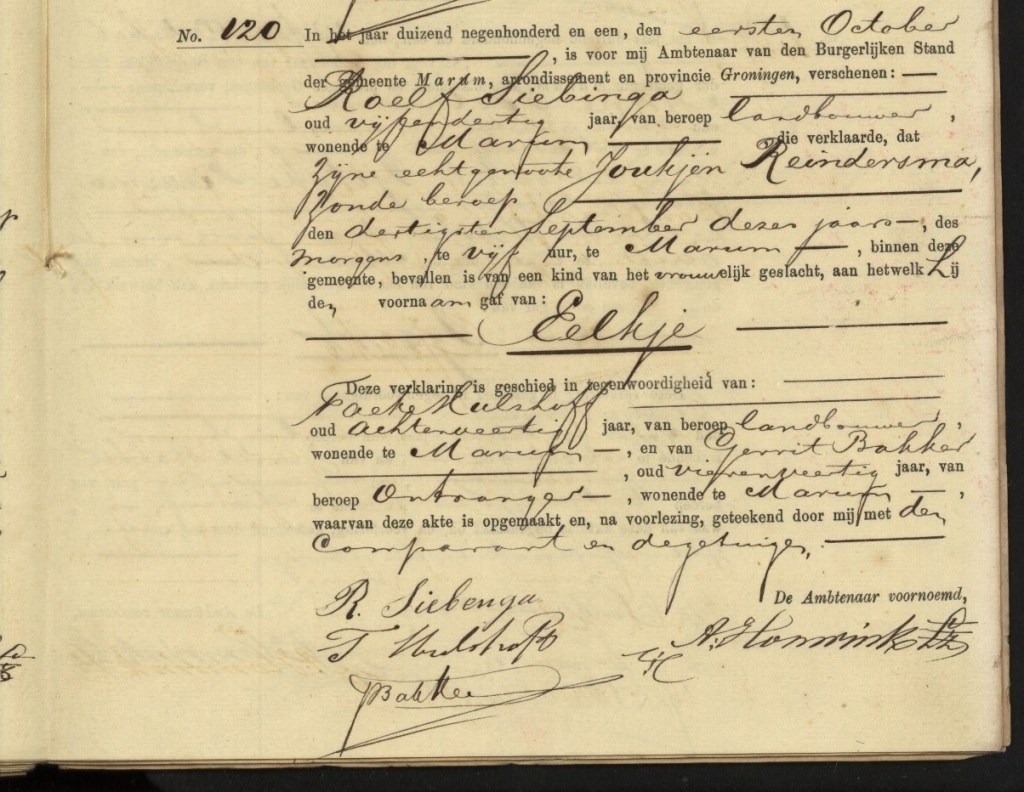 No. 120 In het jaar duizend negenhonderd en een, den eersten October
, is voor mij Ambtenaar van den Burgerlijken Stand
der gemeente Marum, arrondissement en provincie Groningen, verschenen: —
Roelf Siebinga
oud vijfendertig jaar, van beroep landbouwer,
wonende te Marum die verklaarde, dat
Zijne echtgenoote Joukjen Reindersma,
Zonde beroep
den dertigsten September dezes jaars —, des
morgens, te vijf uur, te Marum —, binnen deze
gemeente, bevallen is van een kind van het vrouwelijk geslacht, aan hetwelk Hij
den voornaam gaf van:
Eelkje
Deze verklaring is geschied in tegenwoordigheid van:
Taeke Hulshoff
oud achtenveertig jaar, van beroep landbouwer,
wonende te Marum —, en van Gerrit Bakker
, oud vierenveertig jaar, van
beroep Ontvanger —, wonende te Marum —,
waarvan deze akte is opgemaakt en, na voorlezing, geteekend door mij met den
Comparant en de getuigen.
R. Siebenga
De Ambtenaar voornoemd,
T Hulshoff
Bakker